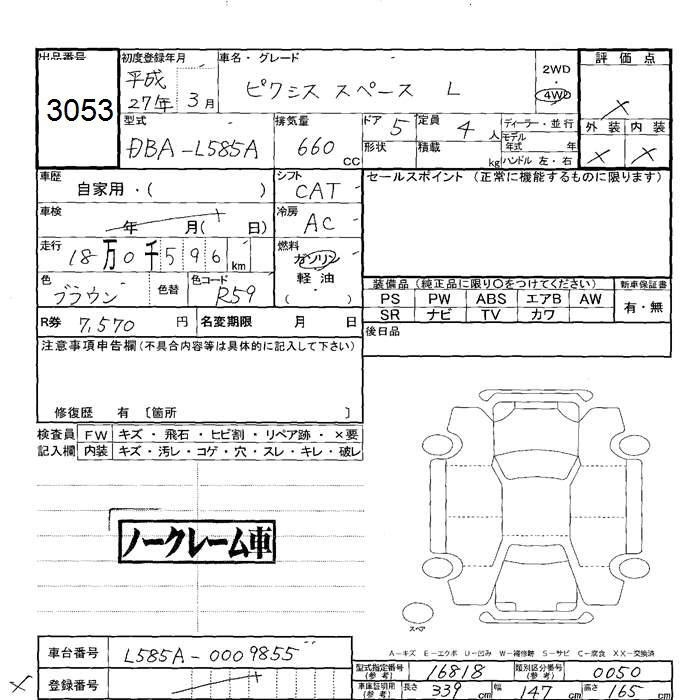 出品番号 初度登録年月 車名・グレード 評価点
3053 平成27年3月 ピクシス スペース L 2WD 4WD ×
型式 排気量 ドア 5 定員 4人 ディーラー・並行 外装 内装
DBA-L585A 660cc 形状 積載 kg モデル年式 年 × ×
ハンドル 左・右
車歴 自家用・( ) シフト CAT セールスポイント (正常に機能するものに限ります)
車検 年 月( 日) 冷房 AC
走行 18万0千596km 燃料 ガソリン
軽油
( )
色 ブラウン 色替 色コード R59
装備品 (純正品に限り〇をつけてください) 新車保証書
PS PW ABS エアB AW 有・無
SR ナビ TV カワ
R券 7,570円 名変期限 月 日 後日品
注意事項申告欄(不具合内容等は具体的に記入して下さい)
修復歴 有 〔箇所 〕
検査員 FW キズ・飛石・ヒビ割・リペア跡・×要
記入欄 内装 キズ・汚レ・コゲ・穴・スレ・キレ・破レ
ノークレーム車
スペア
A-キズ E-エクボ U-凹み W-補修跡 S-サビ C-腐食 XX-交換済
車台番号 L585A-0009855
型式指定番号(参考) 16818 類別区分番号(参考) 0050
× 登録番号
車庫証明用(参考) 長さ 339cm 幅 147cm 高さ 165cm